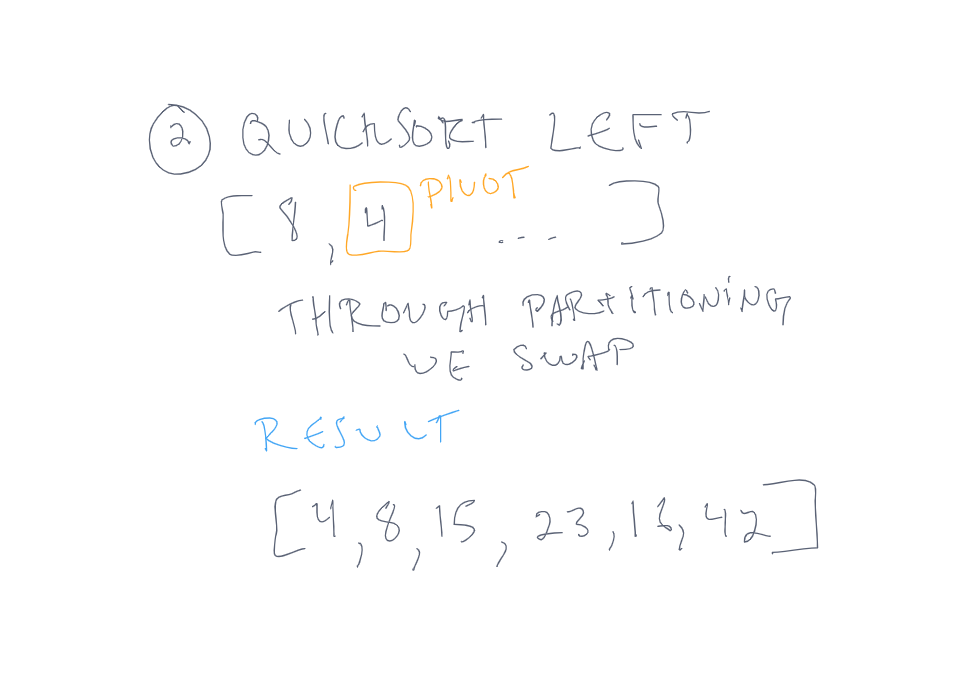 2 QUICKSORT LEFT
[8, 4 PIVOT ... ]
THROUGH PARTITIONING
WE SWAP
RESULT
[4, 8, 15, 23, 16, 42]